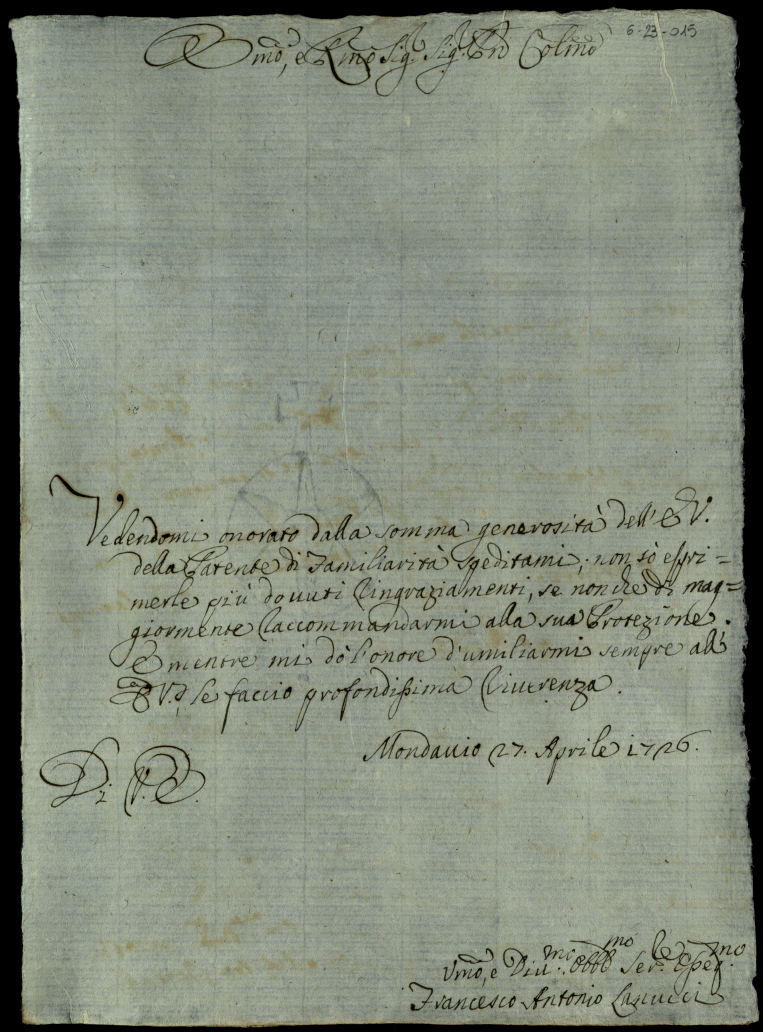 6-23-015
Emõ, e Rmo Sig.r Sig.r Prõ Colmõ
Vedendomi onorato dalla somma generosità dell' E V.
della Patente di Familiarità speditami, non sò espri=
merle più douuti Ringraziamenti, se non che di mag=
giormente Raccommandarmi alla sua Protezione.
E mentre mi dò l'onore d'umiliarmi sempre all'
E V. le faccio profondissima Riuerenza.
Mondauio 27. Aprile 1726.
Di V. E.
Vmõ, e Diu.mo Obbl.mo Ser.re
Francesco Antonio